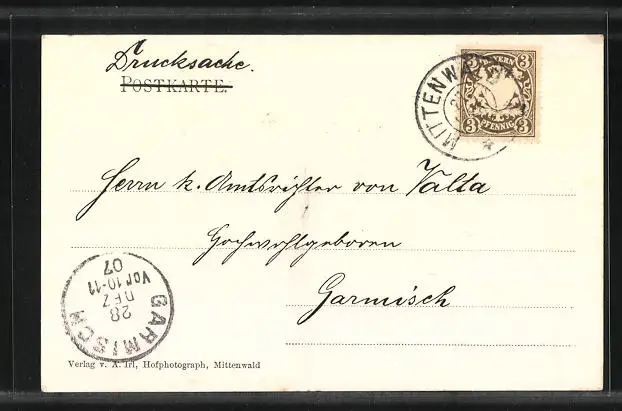 Drucksache.
POSTKARTE.
MITTENWALD
BAYERN
3 3
3 PFENNIG 3
Herrn k. Amtsrichter von Valta
Hochwohlgeboren
Garmisch
GARMISCH
28
DEZ
Vor 10-11
07
Verlag v. A. Irl, Hofphotograph, Mittenwald